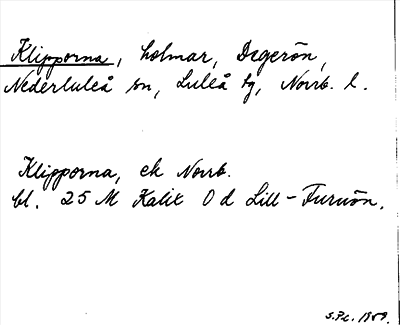 Klipporna, holmar, Degerön,
Nederluleå sn, Luleå tg, Norrb. l.
Klipporna, ek Norrb.
bl. 25 M Kalix O d Lill-Furuön.
S.Pl. 1959.